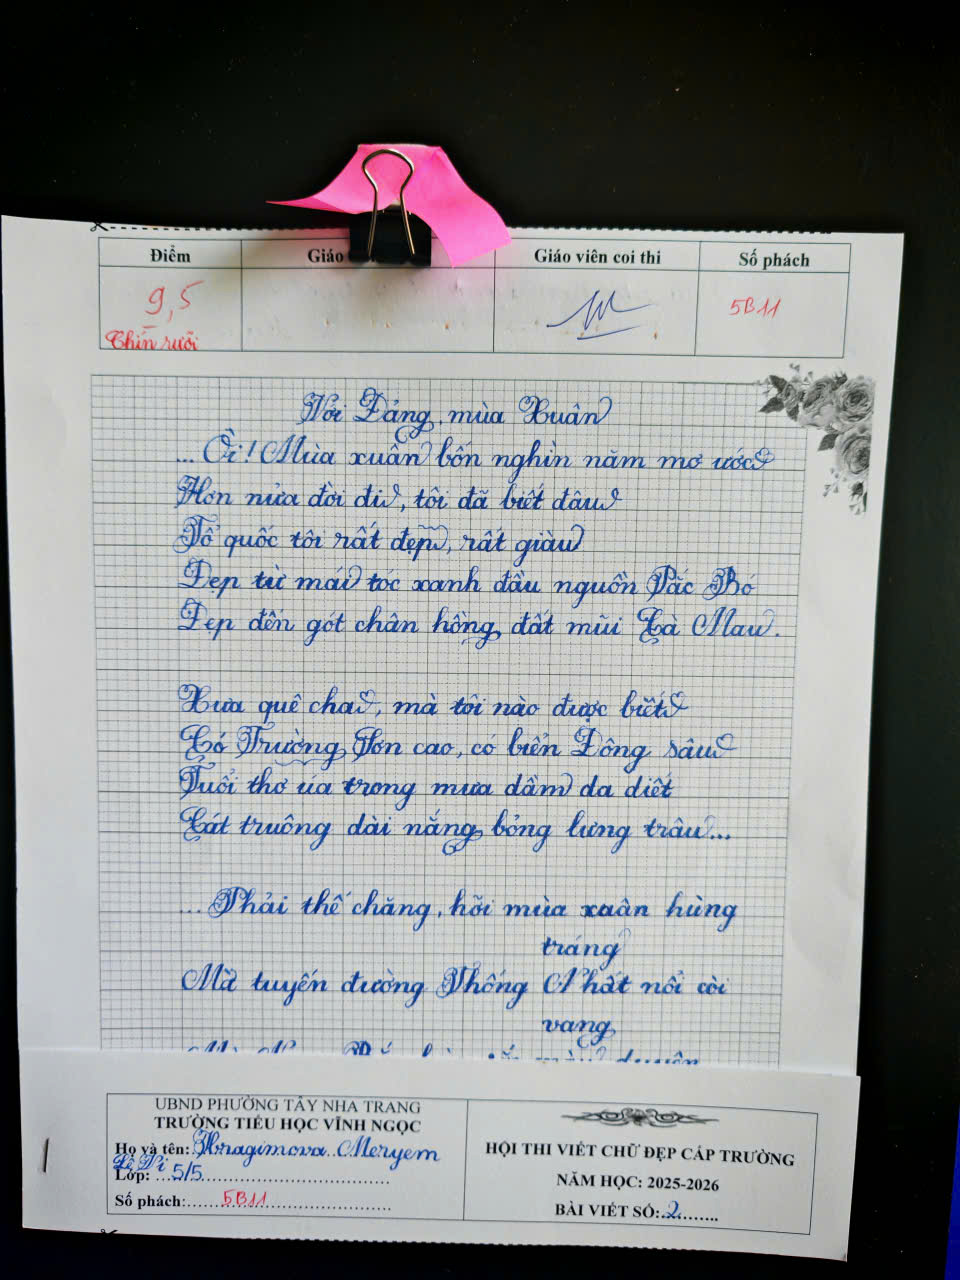 Điểm Giáo Giáo viên coi thi Số phách
9,5 5B11
Chín rưỡi
Với Đảng, mùa Xuân
... Ôi! Mùa xuân bốn nghìn năm mơ ước
Hơn nửa đời đi, tôi đã biết đâu
Tổ quốc tôi rất đẹp, rất giàu
Đẹp từ mái tóc xanh đầu nguồn Pắc Bó
Đẹp đến gót chân hồng, đất mũi Cà Mau.
Xưa quê cha, mà tôi nào được biết
Có Trường Sơn cao, có biển Đông sâu
Tuổi thơ úa trong mưa dầm da diết
Cát truông dài nắng bỏng lưng trâu...
... Phải thế chăng, hỡi mùa xuân hùng
tráng
Mà tuyến đường Thống Nhất nổi còi
vang
UBND PHƯỜNG TÂY NHA TRANG
TRƯỜNG TIỂU HỌC VĨNH NGỌC
Họ và tên: Ibragimova Meryem
Lê Vi
Lớp: 5/5
Số phách: 5B11
HỘI THI VIẾT CHỮ ĐẸP CẤP TRƯỜNG
NĂM HỌC: 2025-2026
BÀI VIẾT SỐ: 2